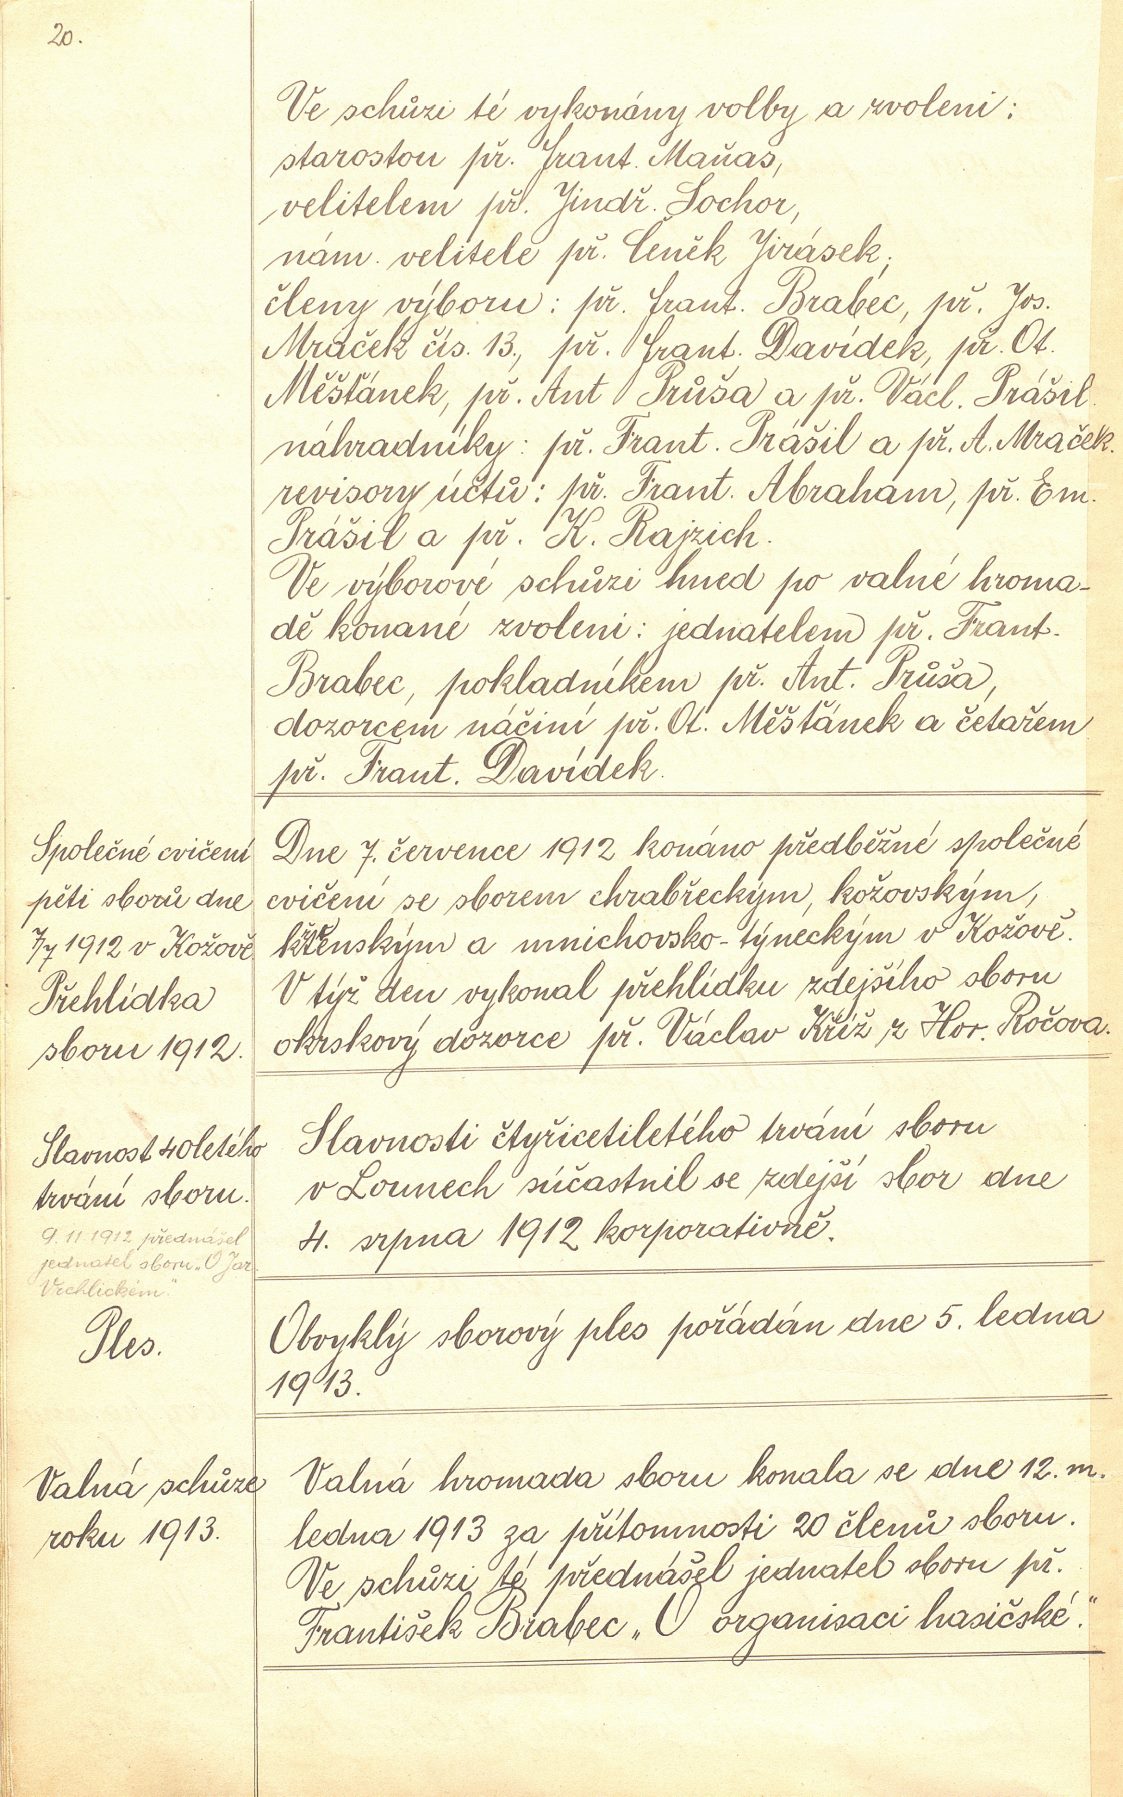 20.
Ve schůzi té vykonány volby a zvoleni:
starostou př. Frant. Maňas,
velitelem př. Jindř. Sochor,
nám. velitele př. Čeněk Jirásek,
členy výboru: př. Frant. Brabec, př. Jos.
Mraček čís. 13., př. Frant. Davídek, př. Ot.
Měšťánek, př. Ant Průša a př. Václ. Prášil.
náhradníky: př. Frant. Prášil a př. A. Mraček.
revisory účtů: př. Frant. Abraham, př. Em.
Prášil a př. K. Rajzich.
Ve výborové schůzi hned po valné hroma-
dě konané zvoleni: jednatelem př. Frant.
Brabec, pokladníkem př. Ant. Průša,
dozorcem náčiní př. Ot. Měšťánek a četařem
př. Frant. Davídek.
Společné cvičení
pěti sborů dne
7/7 1912 v Kožově
Přehlídka
sboru 1912.
Dne 7. července 1912 konáno předběžné společné
cvičení se sborem chrabřeckým, kožovským,
a mnichovsko-týneckým v Kožově.
V týž den vykonal přehlídku zdejšího sboru
okrskový dozorce př. Václav Kříž z Hor. Ročova.
Slavnost 40letého
trvání sboru.
9. 11. 1912 přednášel
jednatel sboru „O Jar.
Vrchlickém."
Slavnosti čtyřicetiletého trvání sboru
v Lounech súčastnil se zdejší sbor dne
4. srpna 1912 korporativně.
Ples.
Obvyklý sborový ples pořádán dne 5. ledna
1913.
Valná schůze
roku 1913.
Valná hromada sboru konala se dne 12. m.
ledna 1913 za přítomnosti 20 členů sboru.
Ve schůzi té přednášel jednatel sboru př.
František Brabec „O organisaci hasičské."